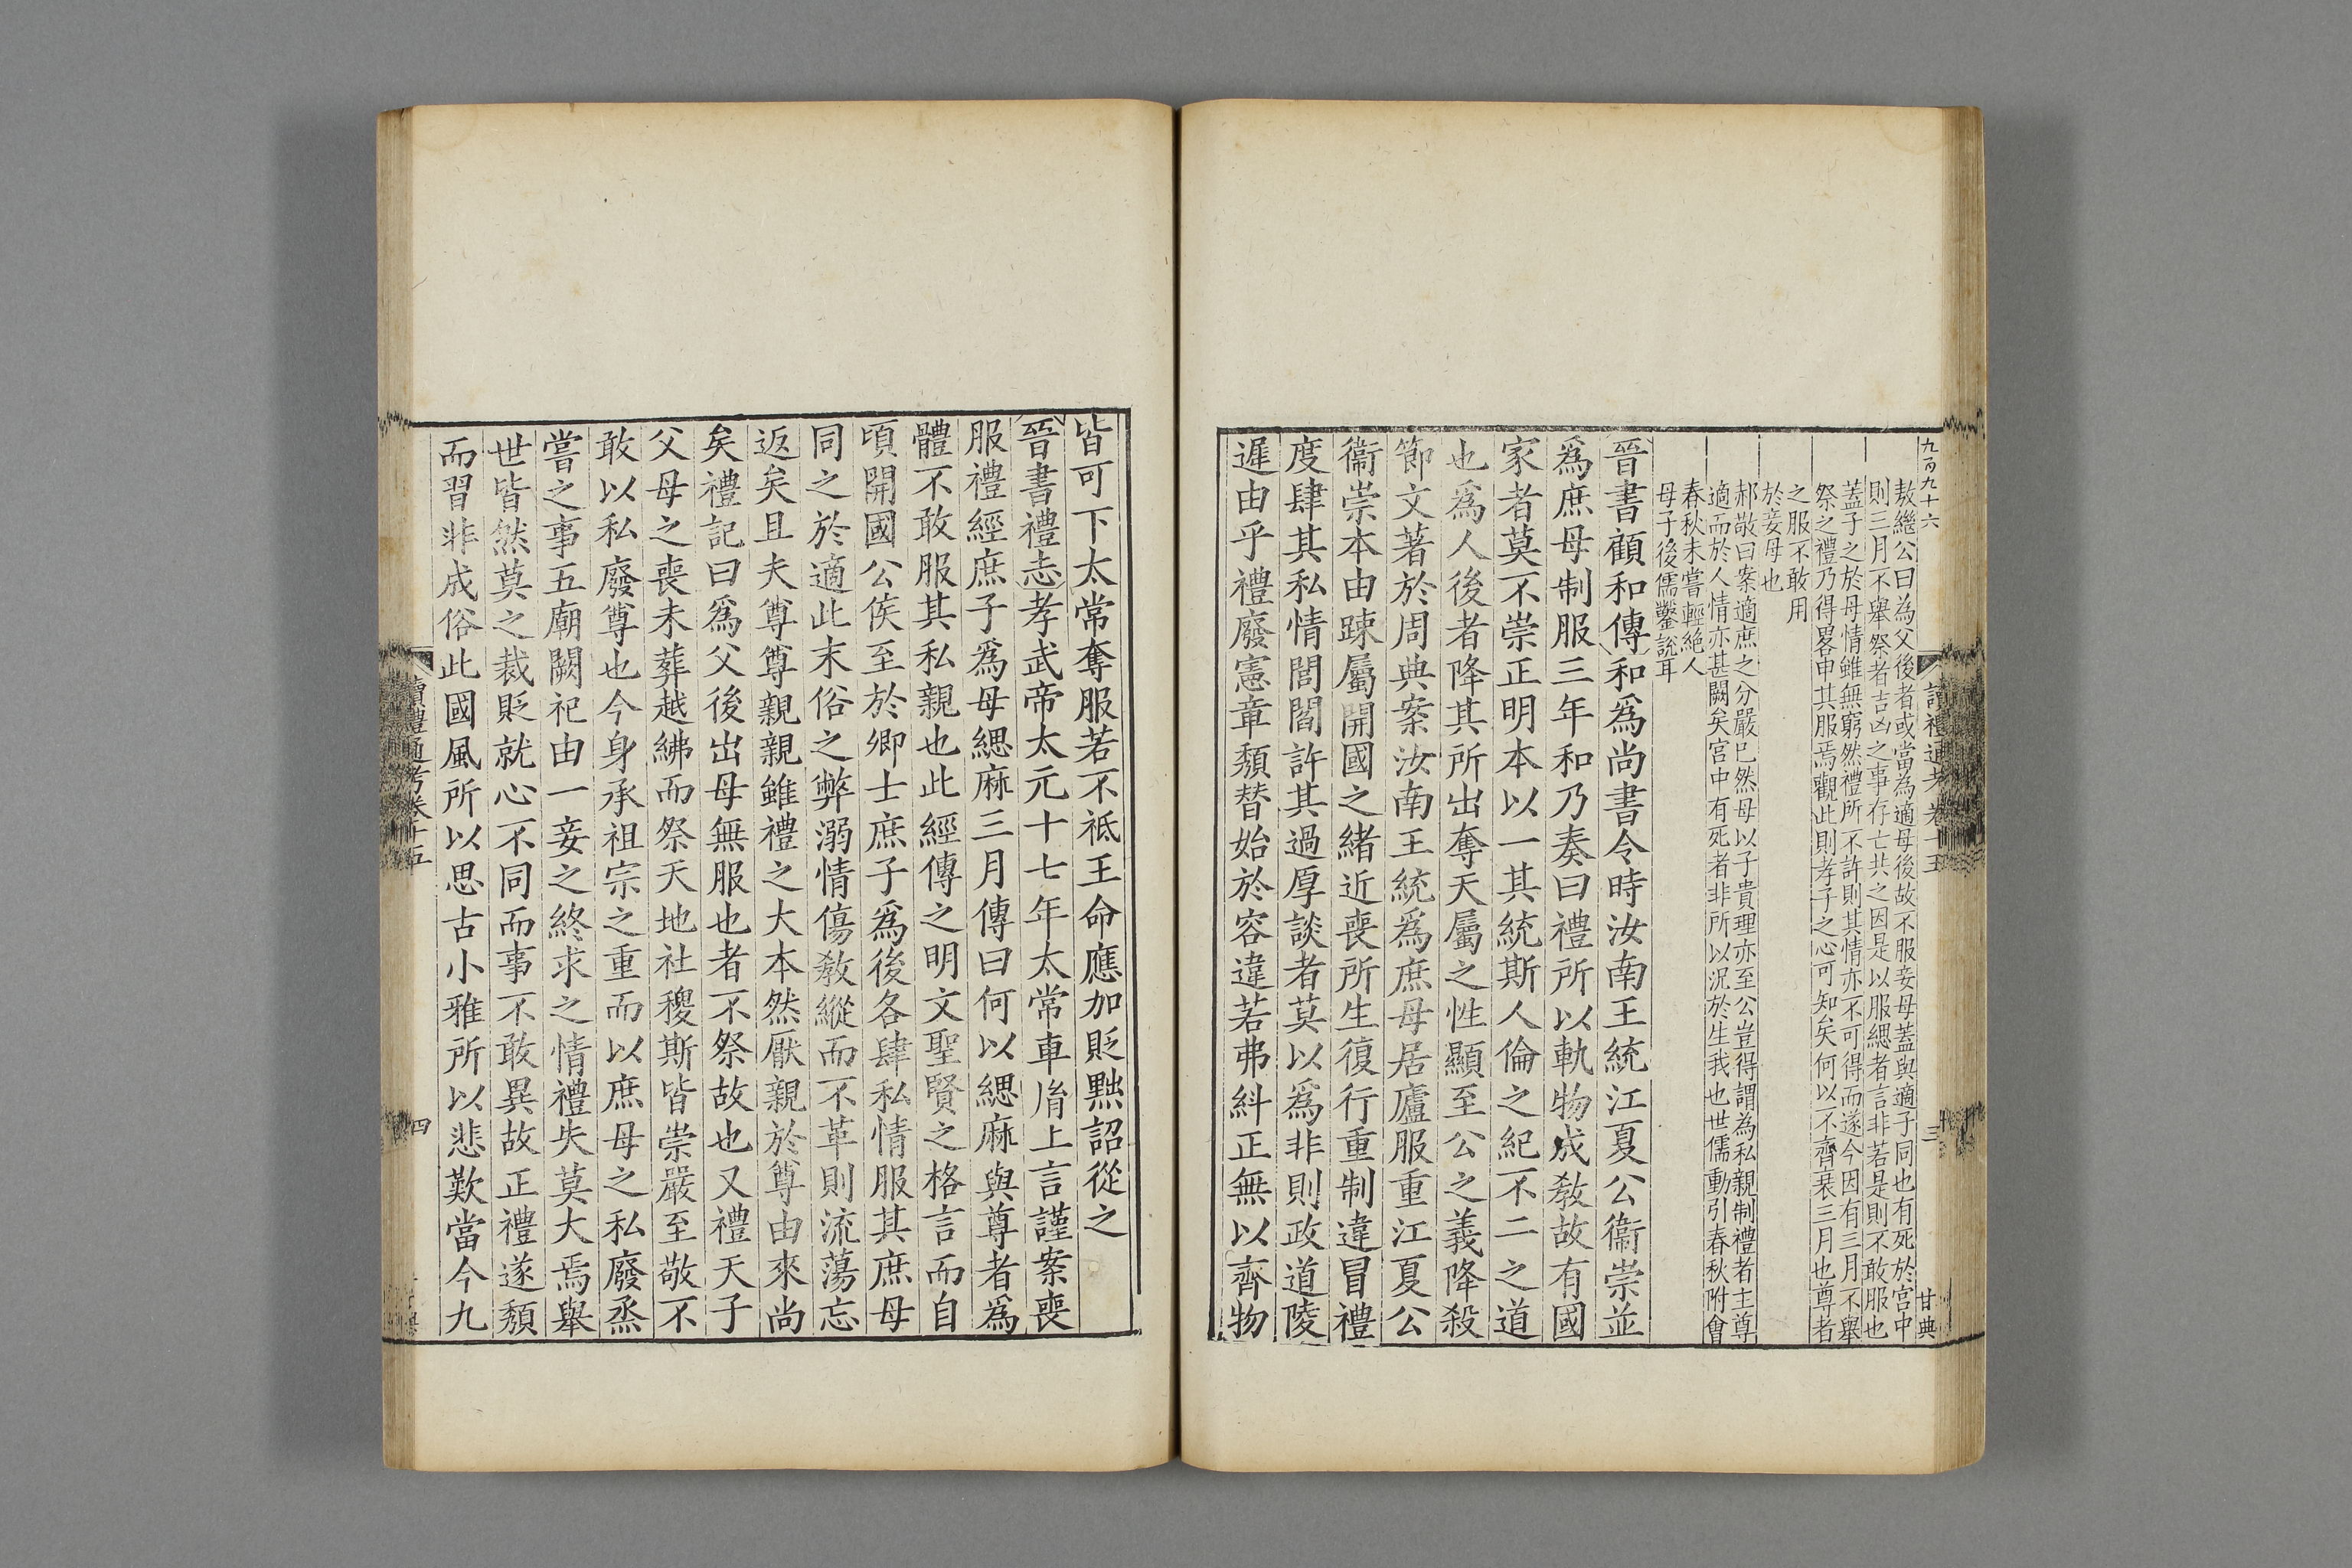 九百九十六
讀禮通考卷十五
三
甘典
敖繼公曰為父後者或當為適母後故不服妾母蓋與適子同也有死於宮中
則三月不舉祭者吉凶之事存亡共之因是以服緦者言非若是則不敢服也
蓋子之於母情雖無窮然禮所不許則其情亦不可得而遂今因有三月不舉
祭之禮乃得畧申其服焉觀此則孝子之心可知矣何以不齊衰三月也尊者
之服不敢用
於妾母也
郝敬曰案適庶之分嚴已然母以子貴理亦至公豈得謂為私親制禮者主尊
適而於人情亦甚闕矣宮中有死者非所以況於生我也世儒動引春秋附會
春秋未嘗輕絕人
母子後儒鑿說耳
晉書顧和傳和爲尚書令時汝南王統江夏公衞崇並
爲庶母制服三年和乃奏曰禮所以軌物成教故有國
家者莫不崇正明本以一其統斯人倫之紀不二之道
也爲人後者降其所出奪天屬之性顯至公之義降殺
節文著於周典案汝南王統爲庶母居廬服重江夏公
衞崇本由疎屬開國之緒近喪所生復行重制違冒禮
度肆其私情閭閻許其過厚談者莫以爲非則政道陵
遲由乎禮廢憲章頹替始於容違若弗糾正無以齊物
皆可下太常奪服若不祗王命應加貶黜詔從之
晉書禮志孝武帝太元十七年太常車胤上言謹案喪
服禮經庶子爲母緦麻三月傳曰何以緦麻與尊者爲
體不敢服其私親也此經傳之明文聖賢之格言而自
頃開國公侯至於卿士庶子爲後各肆私情服其庶母
同之於適此末俗之弊溺情傷教縱而不革則流蕩忘
返矣且夫尊尊親親雖禮之大本然厭親於尊由來尚
矣禮記曰爲父後出母無服也者不祭故也又禮天子
父母之喪未葬越紼而祭天地社稷斯皆崇嚴至敬不
敢以私廢尊也今身承祖宗之重而以庶母之私廢烝
嘗之事五廟闕祀由一妾之終求之情禮失莫大焉舉
世皆然莫之裁貶就心不同而事不敢異故正禮遂頹
而習非成俗此國風所以思古小雅所以悲歎當今九
讀禮通考卷十五
四